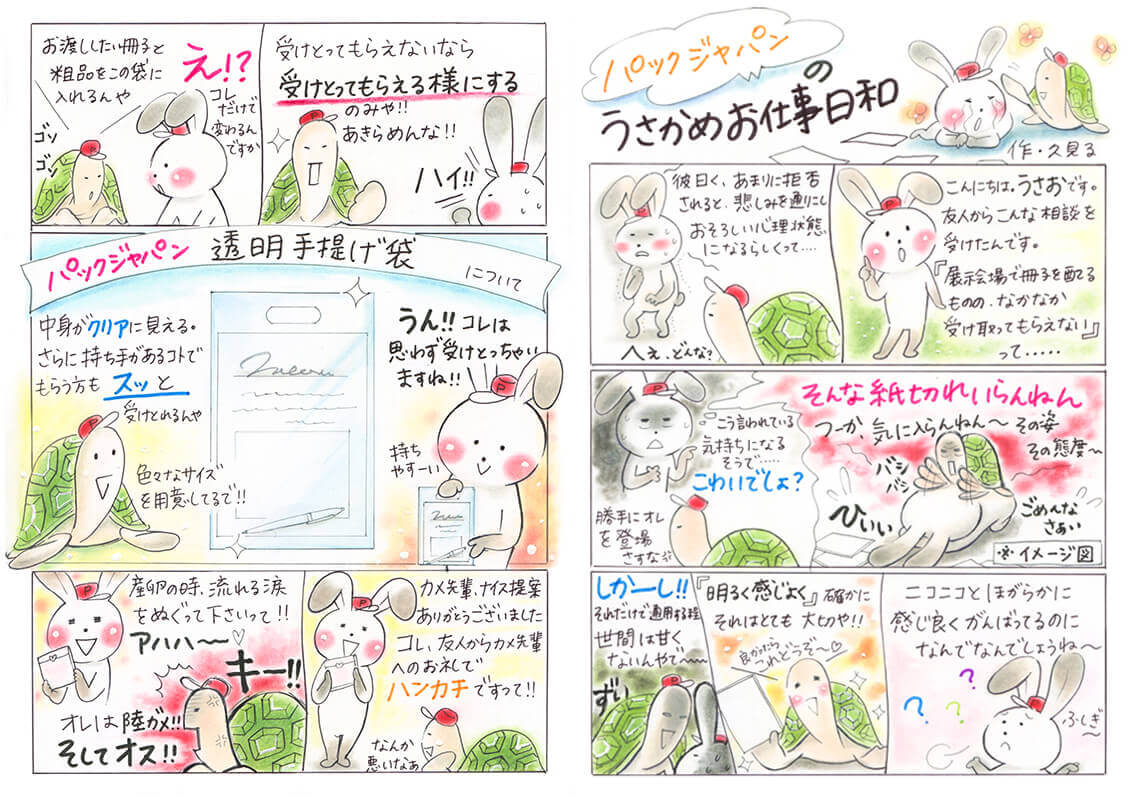 パックジャパンの
うさかめお仕事日和
作・久見る
こんにちは。うさおです。
友人からこんな相談を
受けたんです。
『展示会場で冊子を配てる
ものの、なかなか
受け取ってもらえない』
って・・・・・
彼曰く、あまりに拒否
されると、悲しみを通りこし
おそろしい心理状態
になるらしくって・・・・
へぇ、どんな?
そんな紙切れいらんねん
つーか、気に入らんねん〜その姿
その態度〜
バシ
バシ
ひいい
ごめんな
さぁい
※イメージ図
こう言われている
気持ちになる
そうで・・・・・
こわいでしょ?
勝手にオレ
を登場
さすな
ニコニコとほがらかに
感じ良くがんばってるのに
なんでなんでしょうね〜
? ? ?
ふしぎ〜
『明るく感じよく』確かに
それはとても大切や!!
良かったら
これどうぞ〜♡
しかーし!!
それだけで通用する程
世間は甘く
ないんやで〜
ずい
受けとってもらえないなら
受けとってもらえる様にする
のみや!!
あきらめんな!!
ハイ!!
お渡ししたい冊子と
粗品をこの袋に
入れるんや
ゴソ
ゴソ
え!?
コレ
だけで
変わるん
ですか
パックジャパン 透明手提げ袋 について
うん!! コレは
思わず受けとっちゃい
ますね!!
持ち
やすーい
中身がクリアに見える。
さらに持ち手があるコトで
もらう方も スッと
受けとれるんや
色々なサイズ
を用意してるで!!
カメ先輩、ナイス提案
ありがとうございました
コレ、友人からカメ先輩
へのお礼で
ハンカチですって!!
なんか
悪いなぁ
産卵の時、流れる涙
をぬぐって下さいって!!
アハハ〜♡
キー!!
オレは陸ガメ!!
そしてオス!!
P